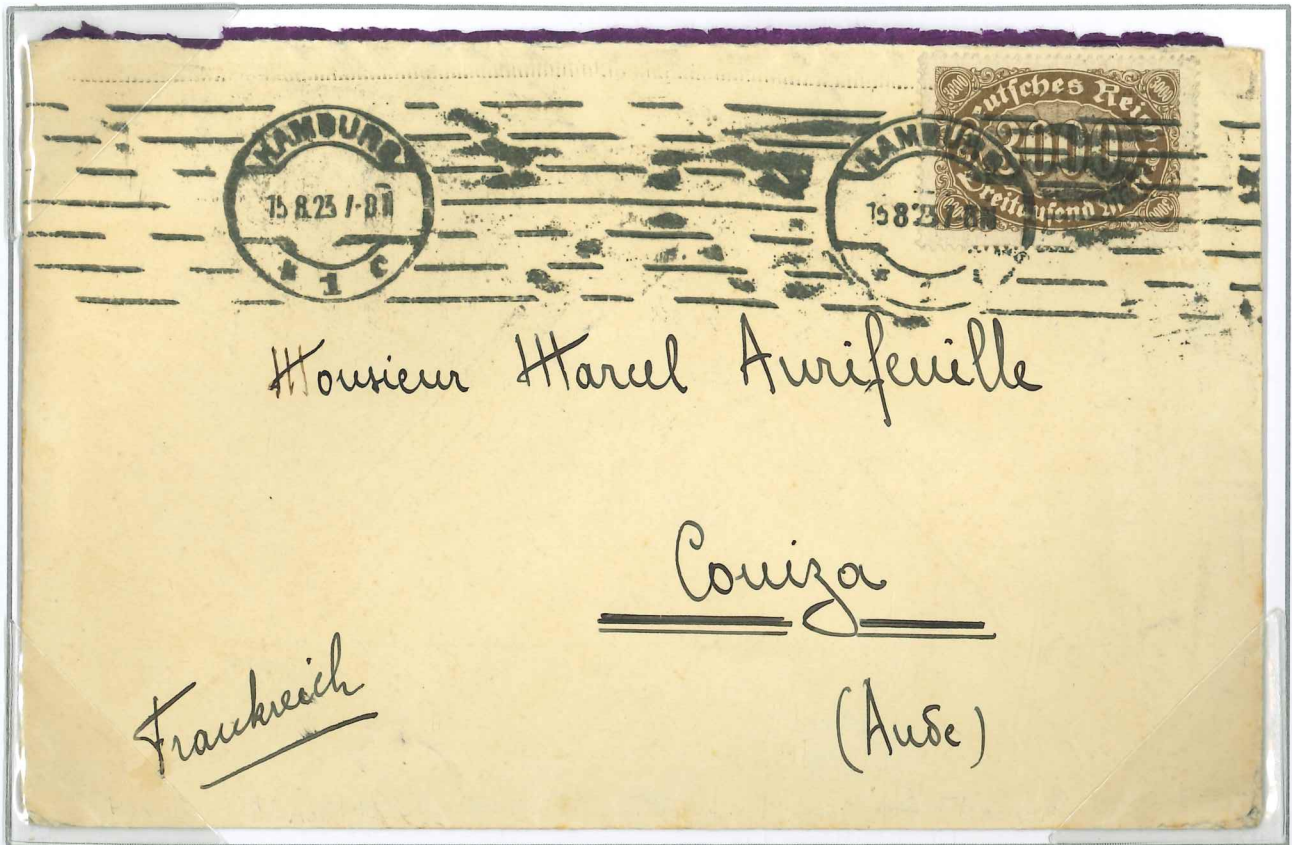 HAMBURG
15.8.23 7-8 N
* 1 c
HAMBURG
15.8.23 7-8 N
3000 3000
Deutsches Reich
3000
Dreitausend Mark
3000
Monsieur Marcel Aurifeuille
Couiza
(Aude)
Frankreich